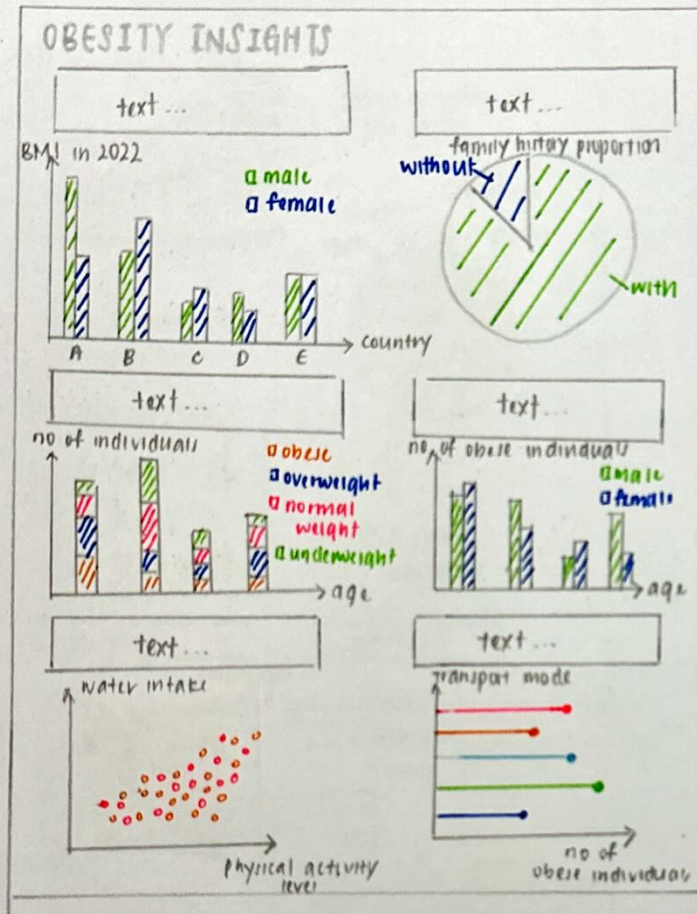 OBESITY INSIGHTS
text...
BMI in 2022
male
female
country
A B C D E
text...
family history proportion
without
with
text...
no of individuals
obese
overweight
normal
weight
underweight
age
text...
no. of obese individuals
male
female
age
text...
water intake
physical activity
level
text...
Transport mode
no of
obese individuals